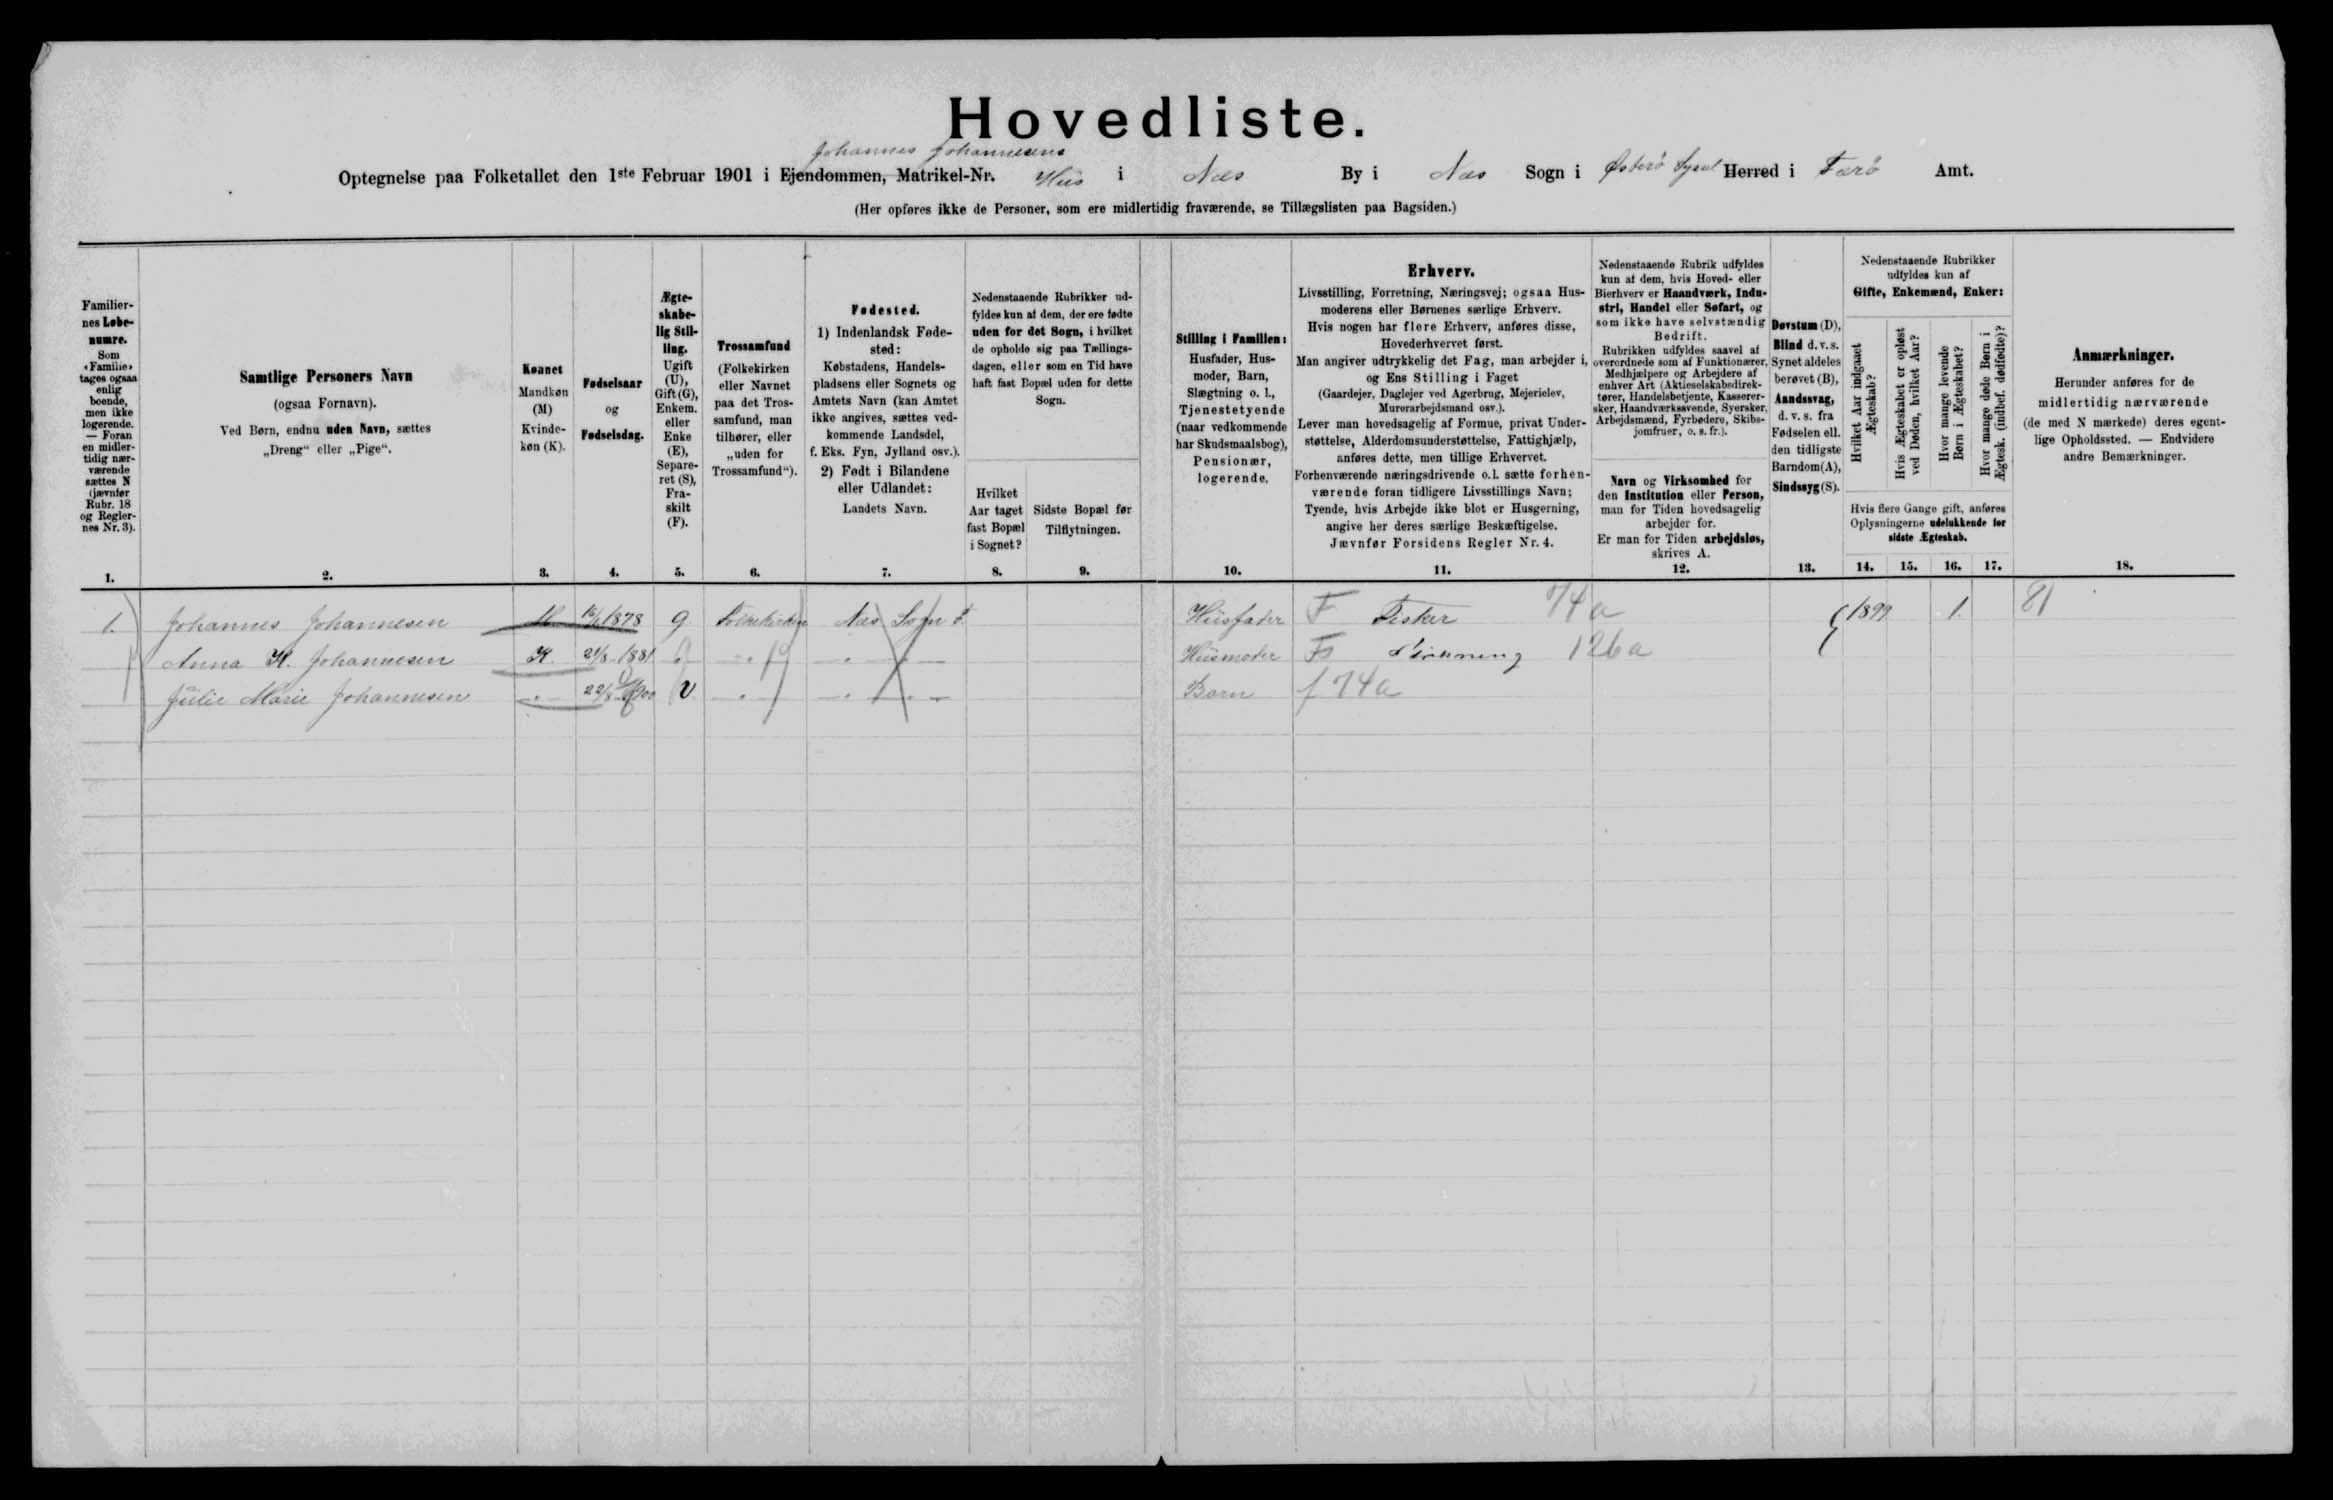 Hovedliste.
Johannes Johannesens
Optegnelse paa Folketallet den 1ste Februar 1901 i Ejendommen, Matrikel-Nr. Hüs i Næs By i Næs Sogn i Østerø Sysel Herred i Færö Amt.
(Her opføres ikke de Personer, som ere midlertidig fraværende, se Tillægslisten paa Bagsiden.)
Familier-
nes Løbe-
numre.
Som
«Familie»
tages ogsaa
enlig
boende,
men ikke
logerende.
— Foran
en midler-
tidig nær-
værende
sættes N
(jævnfør
Rubr. 18
og Regler-
nes Nr. 3).
1.
Samtlige Personers Navn
(ogsaa Fornavn).
Ved Børn, endnu uden Navn, sættes
„Dreng“ eller „Pige“.
2.
Kønnet
Mandkøn
(M)
Kvinde-
køn (K).
3.
Fødselsaar
og
Fødselsdag.
4.
Ægte-
skabe-
lig Stil-
ling.
Ugift
(U),
Gift (G),
Enkem.
eller
Enke
(E),
Separe-
ret (S),
Fra-
skilt
(F).
5.
Trossamfund
(Folkekirken
eller Navnet
paa det Tros-
samfund, man
tilhører, eller
„uden for
Trossamfund“).
6.
Fødested.
1) Indenlandsk Føde-
sted:
Købstadens, Handels-
pladsens eller Sognets og
Amtets Navn (kan Amtet
ikke angives, sættes ved-
kommende Landsdel,
f. Eks. Fyn, Jylland osv.).
2) Født i Bilandene
eller Udlandet:
Landets Navn.
7.
Nedenstaaende Rubrikker ud-
fyldes kun af dem, der ere fødte
uden for det Sogn, i hvilket
de opholde sig paa Tællings-
dagen, eller som en Tid have
haft fast Bopæl uden for dette
Sogn.
Hvilket
Aar taget
fast Bopæl
i Sognet?
8.
Sidste Bopæl før
Tilflytningen.
9.
Stilling i Familien:
Husfader, Hus-
moder, Barn,
Slægtning o. l.,
Tjenestetyende
(naar vedkommende
har Skudsmaalsbog),
Pensionær,
logerende.
10.
Erhverv.
Livsstilling, Forretning, Næringsvej; ogsaa Hus-
moderens eller Børnenes særlige Erhverv.
Hvis nogen har flere Erhverv, anføres disse,
Hovederhvervet først.
Man angiver udtrykkelig det Fag, man arbejder i,
og Ens Stilling i Faget
(Gaardejer, Daglejer ved Agerbrug, Mejerielev,
Murerarbejdsmand osv.).
Lever man hovedsagelig af Formue, privat Under-
støttelse, Alderdomsunderstøttelse, Fattighjælp,
anføres dette, men tillige Erhvervet.
Forhenværende næringsdrivende o. l. sætte forhen-
værende foran tidligere Livsstillings Navn;
Tyende, hvis Arbejde ikke blot er Husgerning,
angive her deres særlige Beskæftigelse.
Jævnfør Forsidens Regler Nr. 4.
11.
Nedenstaaende Rubrik udfyldes
kun af dem, hvis Hoved- eller
Bierhverv er Haandværk, Indu-
stri, Handel eller Søfart, og
som ikke have selvstændig
Bedrift.
Rubrikken udfyldes saavel af
overordnede som af Funktionærer,
Medhjælpere og Arbejdere af
enhver Art (Aktieselskabsdirek-
tører, Handelsbetjente, Kasserer-
sker, Haandværkssvende, Syersker,
Arbejdsmænd, Fyrbødere, Skibs-
jomfruer, o. s. fr.).
Navn og Virksomhed for
den Institution eller Person,
man for Tiden hovedsagelig
arbejder for.
Er man for Tiden arbejdsløs,
skrives A.
12.
Døvstum (D),
Blind d. v. s.
Synet aldeles
berøvet (B),
Aandssvag,
d. v. s. fra
Fødselen ell.
den tidligste
Barndom (A),
Sindssyg (S).
13.
Nedenstaaende Rubrikker
udfyldes kun af
Gifte, Enkemænd, Enker:
Hvilket Aar indgaaet
Ægteskab?
Hvis Ægteskabet er opløst
ved Døden, hvilket Aar?
Hvor mange levende
Børn i Ægteskabet?
Hvor mange døde Børn i
Ægtesk. (indbef. dødfødte)?
Hvis flere Gange gift, anføres
Oplysningerne udelukkende for
sidste Ægteskab.
14. 15. 16. 17.
Anmærkninger.
Herunder anføres for de
midlertidig nærværende
(de med N mærkede) deres egent-
lige Opholdssted. — Endvidere
andre Bemærkninger.
18.
1. Johannes Johannesen M. 1878 g. Folkekirken Næs Sogn F. Hüsfader F Fisker 74a 1899 1. 81
Anna K. Johannesen K. 21/8 1881 g. — " — — " — " — Hüsmoder 126a
Jülie Marie Johannesen — " — 22/8 1900 U — " — — " — " — Barn f 74a